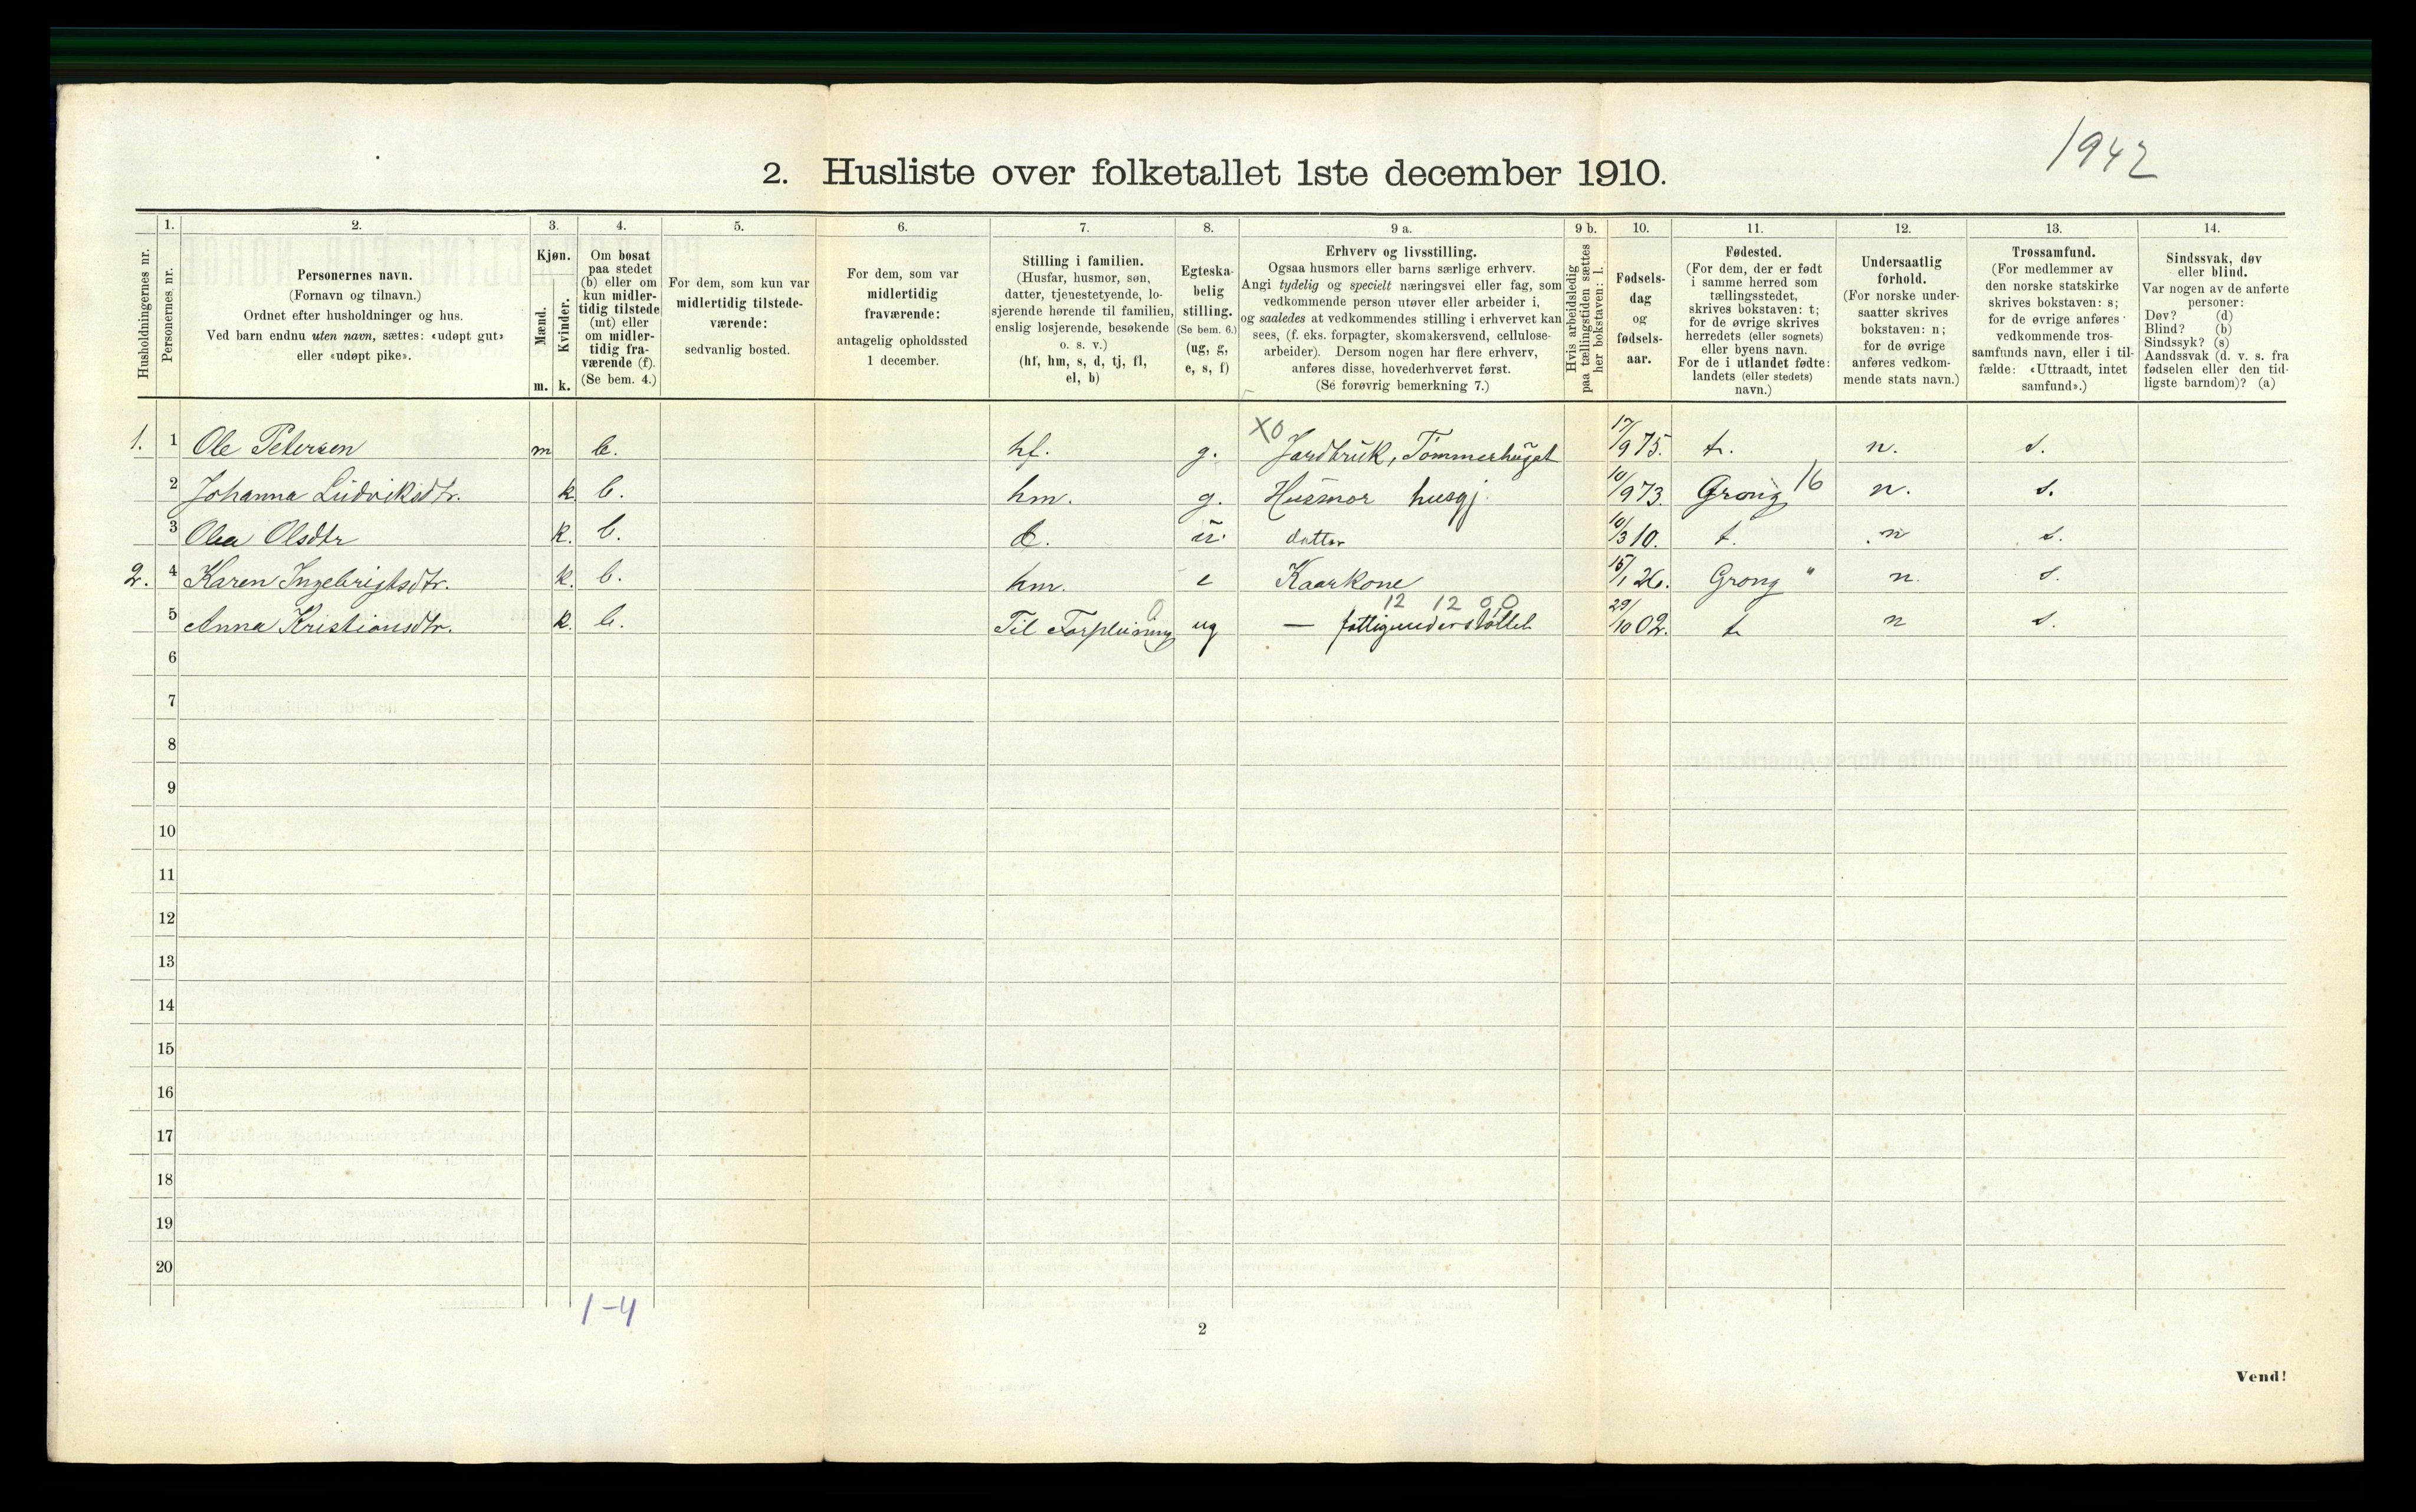 1942
2. Husliste over folketallet 1ste december 1910.
1. 2. 3. 4. 5. 6. 7. 8. 9 a. 9 b. 10. 11. 12. 13. 14.
Husholdningernes nr.
Personernes nr.
Personernes navn.
(Fornavn og tilnavn.)
Ordnet efter husholdninger og hus.
Ved barn endnu uten navn, sættes: «udøpt gut»
eller «udøpt pike».
Kjøn.
Mænd.
Kvinder.
m. k.
Om bosat
paa stedet
(b) eller om
kun midler-
tidig tilstede
(mt) eller
om midler-
tidig fra-
værende (f).
(Se bem. 4.)
For dem, som kun var
midlertidig tilstede-
værende:
sedvanlig bosted.
For dem, som var
midlertidig
fraværende:
antagelig opholdssted
1 december.
Stilling i familien.
(Husfar, husmor, søn,
datter, tjenestetyende, lo-
sjerende hørende til familien,
enslig losjerende, besøkende
o. s. v.)
(hf, hm, s, d, tj, fl,
el, b)
Egteska-
belig
stilling.
(Se bem. 6.)
(ug, g,
e, s, f)
Erhverv og livsstilling.
Ogsaa husmors eller barns særlige erhverv.
Angi tydelig og specielt næringsvei eller fag, som
vedkommende person utøver eller arbeider i,
og saaledes at vedkommendes stilling i erhvervet kan
sees, (f. eks. forpagter, skomakersvend, cellulose-
arbeider). Dersom nogen har flere erhverv,
anføres disse, hovederhvervet først.
(Se forøvrig bemerkning 7.)
Hvis arbeidsledig
paa tællingstiden sættes
her bokstaven: l.
Fødsels-
dag
og
fødsels-
aar.
Fødested.
(For dem, der er født
i samme herred som
tællingsstedet,
skrives bokstaven: t;
for de øvrige skrives
herredets (eller sognets)
eller byens navn.
For de i utlandet fødte:
landets (eller stedets)
navn.)
Undersaatlig
forhold.
(For norske under-
saatter skrives
bokstaven: n;
for de øvrige
anføres vedkom-
mende stats navn.)
Trossamfund.
(For medlemmer av
den norske statskirke
skrives bokstaven: s;
for de øvrige anføres
vedkommende tros-
samfunds navn, eller i til-
fælde: «Uttraadt, intet
samfund».)
Sindssvak, døv
eller blind.
Var nogen av de anførte
personer:
Døv? (d)
Blind? (b)
Sindssyk? (s)
Aandssvak (d. v. s. fra
fødselen eller den tid-
ligste barndom)? (a)
X0
1. 1 Ole Petersen m b. hf. g. Jordbruk, Tømmerhugst 17/9 75. t. n. s.
2 Johanna Ludviksdtr. k. b. hm. g. Husmor husgj. 10/9 73. Grong 16 n. s.
3 Olea Olsdtr k. b. d. datter 10/3 10. t. n s.
2. 4 Karen Ingebrigtsdtr. k. b. hm. e Kaarkone 15/1 26. Grong " n. s.
0 12 12 0 0
5 Anna Kristiansdtr. k. b. Til Forpleining ug — fattigunderstøttet 29/10 02. t n s.
6
7
8
9
10
11
12
13
14
15
16
17
18
19
20
1-4
2
Vend!